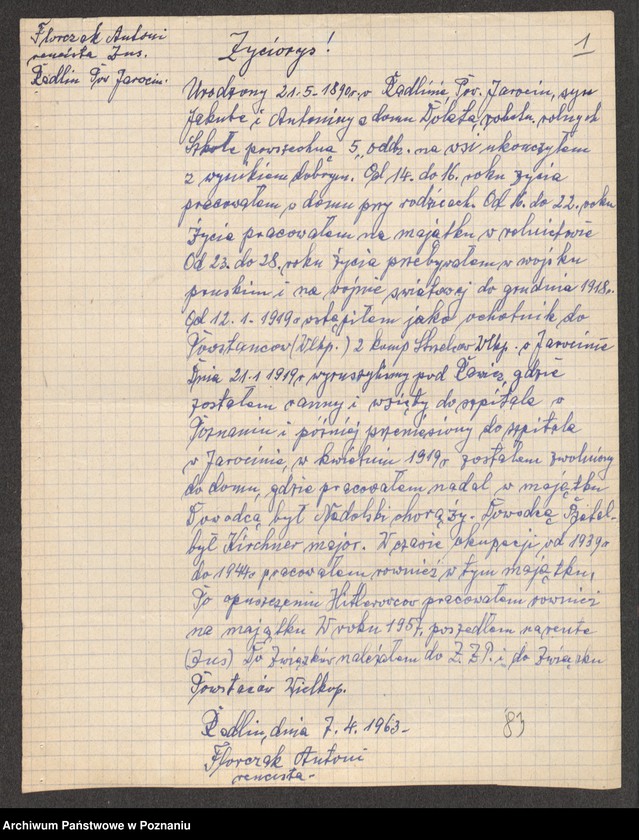 Florczak Antoni
rencista Zus.
Radlin Pow Jarocin.
Życiorys!
1
Urodzony 21-5-1890r. w Radlinie, Pow. Jarocin, syn
Jakuba i Antoniny z domu Dolata, robotn. rolnych
Szkołe powszechną 5, oddz. na wsi ukończyłem
z wynikiem dobrym. Od 14. do 16. roku życia
pracowałem w domu przy rodzicach. Od 16. do 22. roku
życia pracowałem na majątku w rolnictwie
Od 23. do 28. roku życia przebywałem w wojsku
pruskim i na wojnie światowej do grudnia 1918r.
Od 12.1-1919r wstąpiłem jako ochotnik do
Powstańców (Wlkp.) 2 komp Strzelców Wlkp. w Jarocinie
Dnia 21-1 1919r wyruszyliśmy pod Rawicz, gdzie
zostałem ranny i wzięty do szpitala w
Poznaniu i później przeniesiony do szpitala
w Jarocinie, w kwietniu 1919r zostałem zwolniony
do domu, gdzie pracowałem nadal w majątku
Dowodcą był Nadolski chorąży. Dowodcą
był Kirchner major. W czasie okupacji od 1939r
do 1944r pracowałem rownież w tym majątku,
Po opuszczeniu Hitlerowcow pracowałem rownież
na majątku W roku 1957, poszedłem na rente
(Zus) Do Związków należałem do Z.Z.P. i do Związku
Powstańców Wielkop.
Radlin, dnia 7.4.1963-
83
Florczak Antoni
rencista-
Archiwum Państwowe w Poznaniu